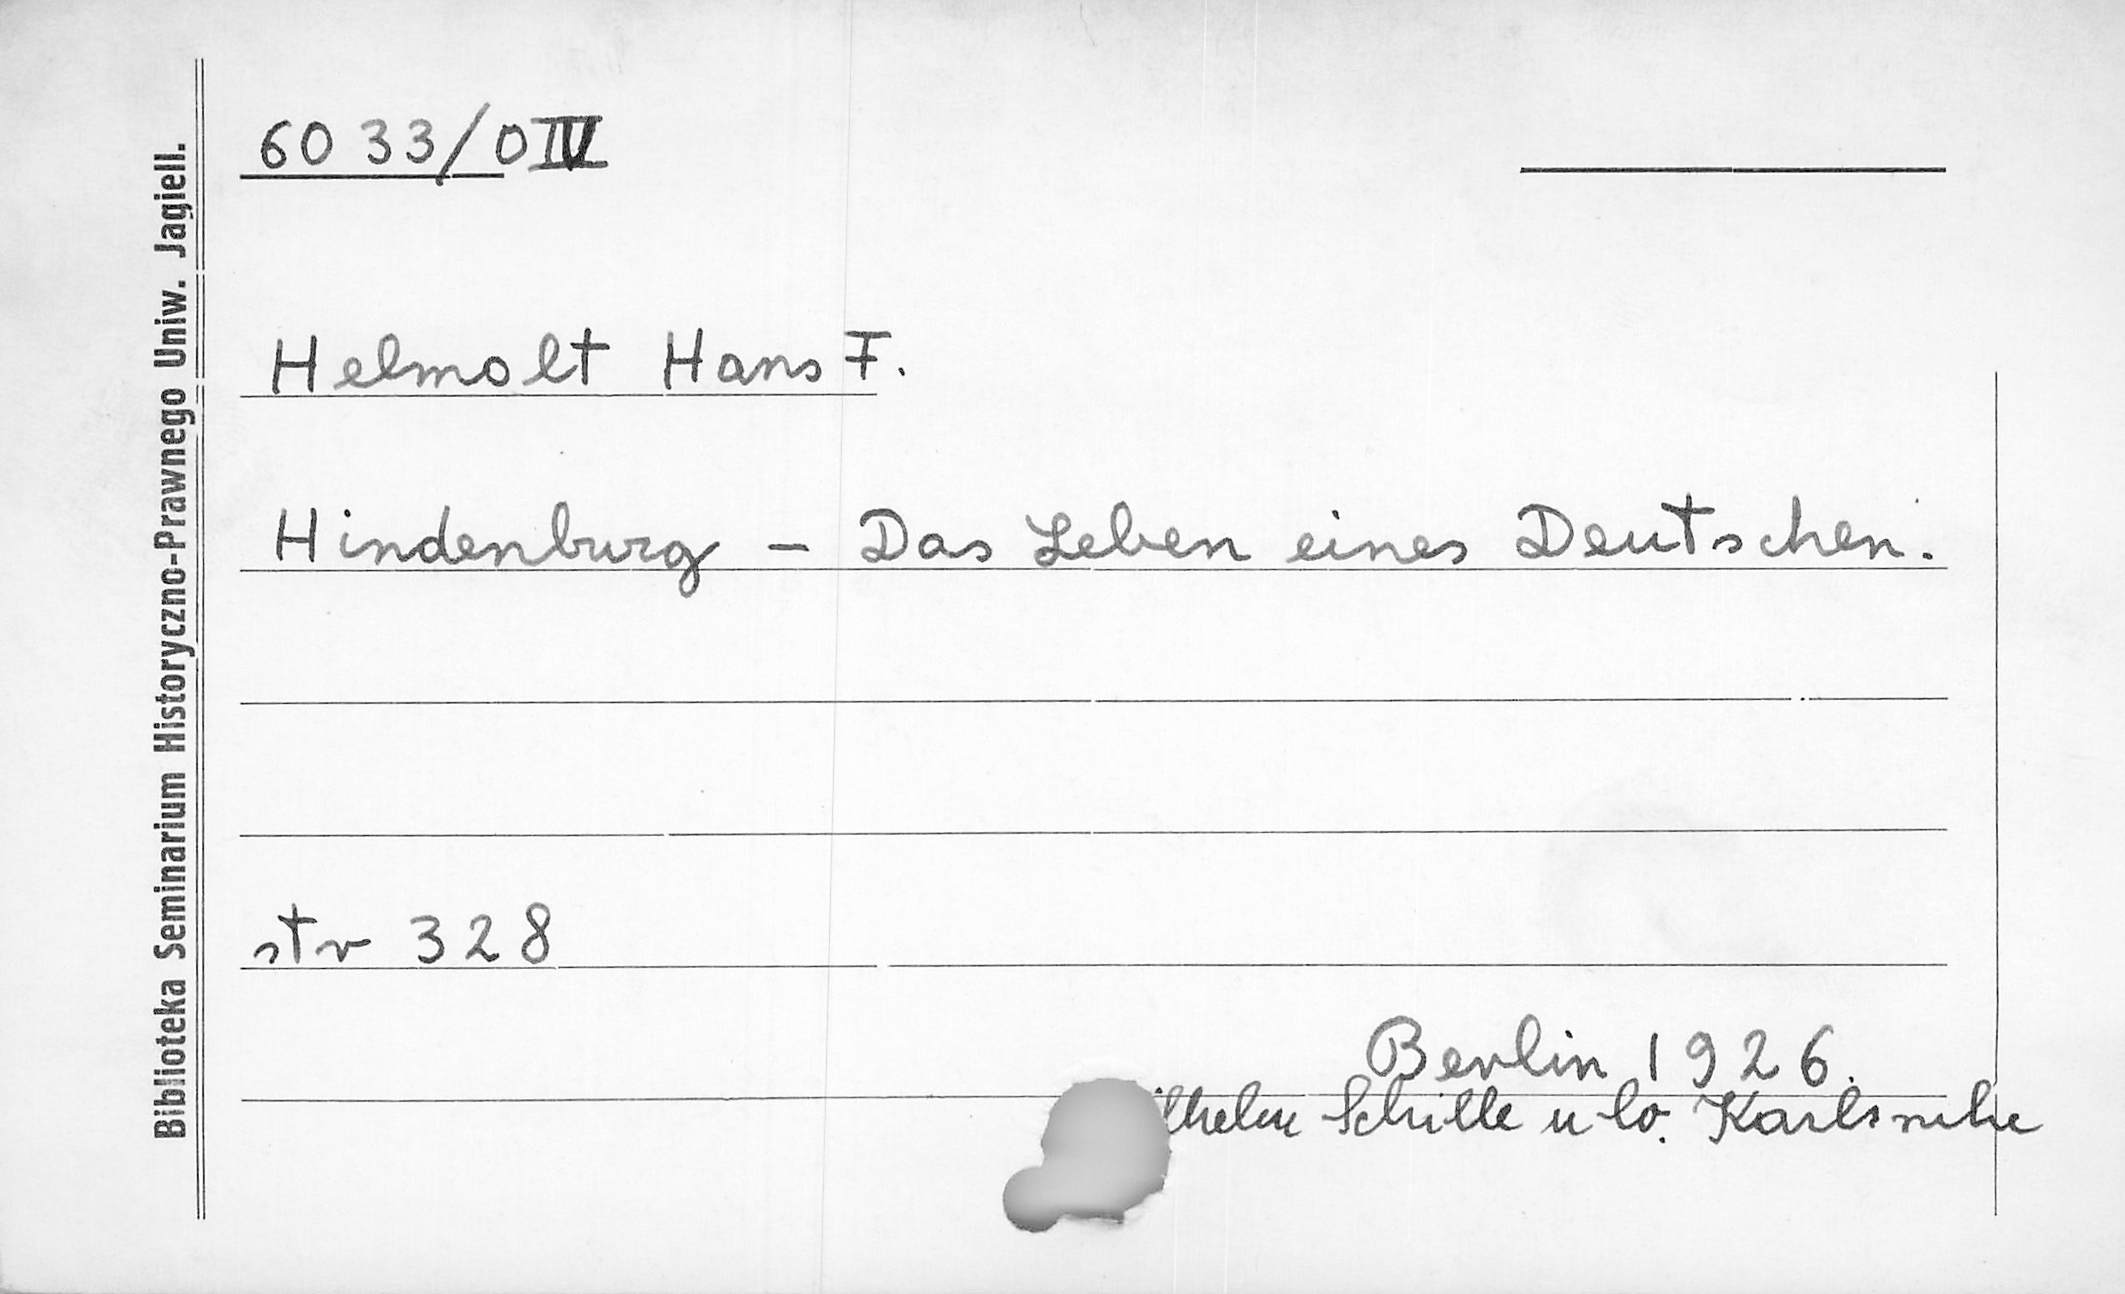 6033/0IV
Helmolt Hans F.
Hindenburg - Das Leben eines Deutschen.
str 328
Berlin 1926.
ilhelm Schille u Co. Karlsruhe
Biblioteka Seminarium Historyczno-Prawnego Uniw. Jagiell.